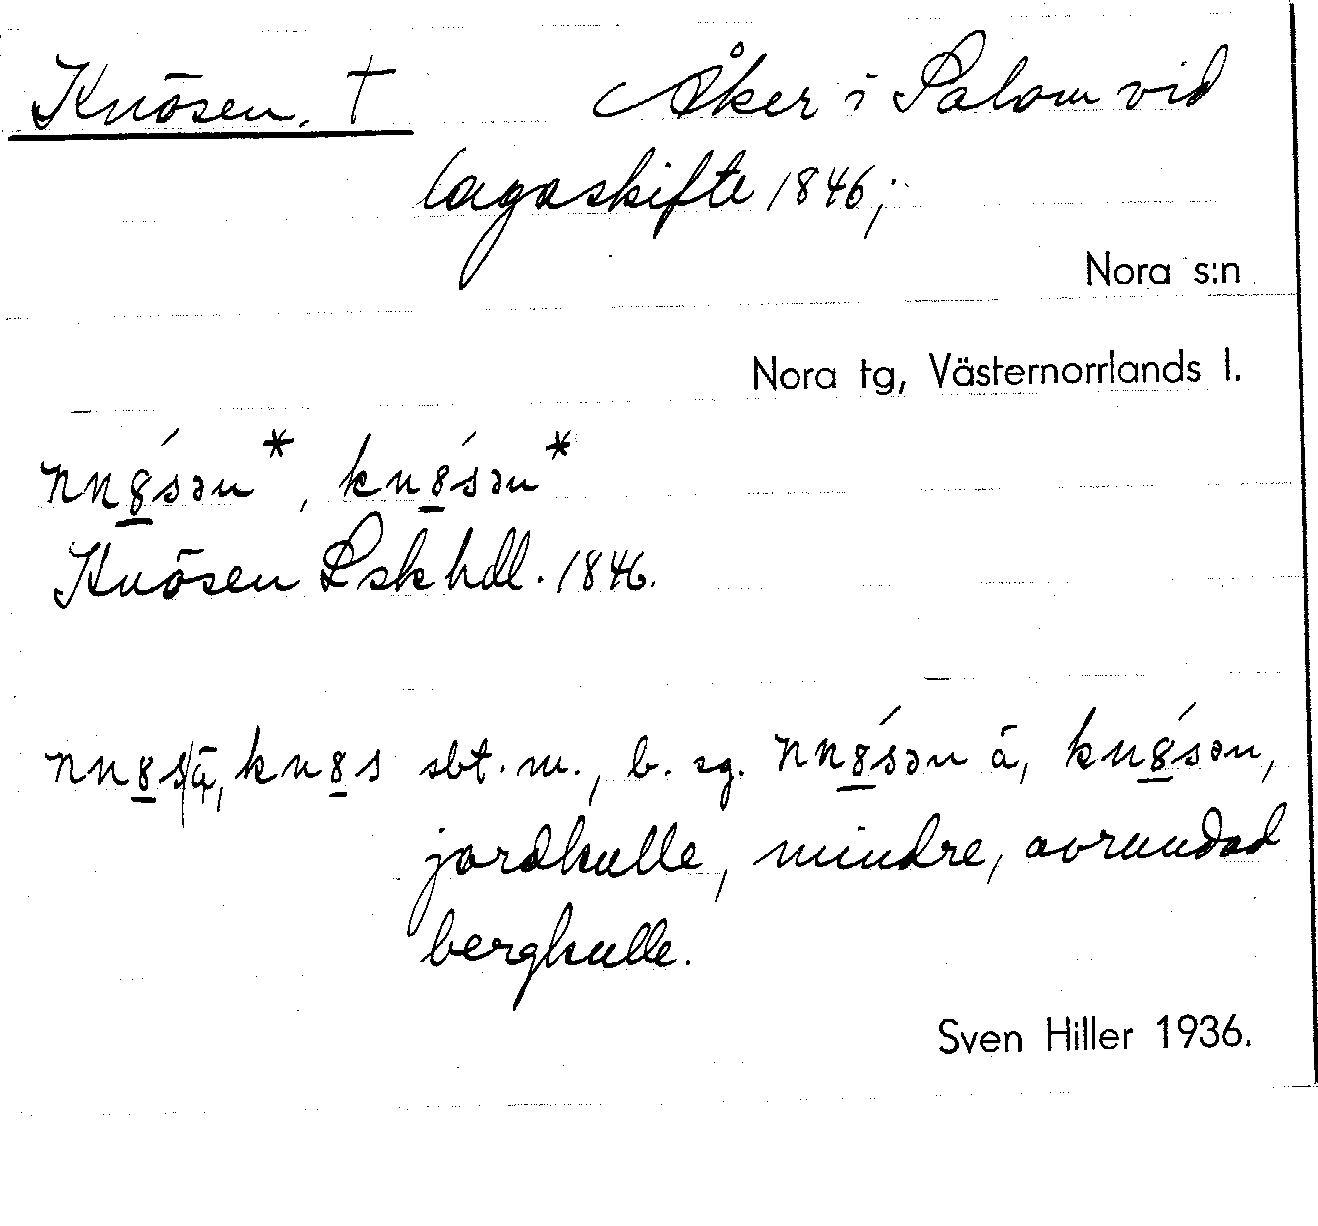 Knösen. † Åker i Salom vid
lagaskifte 1846;
Nora s:n
Nora tg, Västernorrlands l.
nn8́sən*, kn8́sən*
Knösen Lskhdl. 1846.
nn8s ä, kn8s sbt. m., b. sg. nn8́sən ä, kn8́sən,
jordkulle, mindre, avrundad
bergkulle.
Sven Hiller 1936.